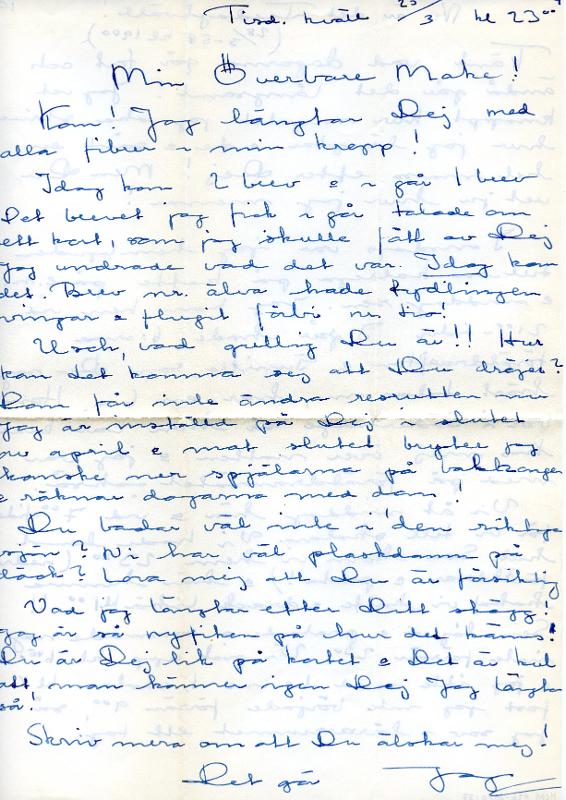 Tisd. kväll 25/3 kl 23⁰⁰
Min Underbare Make!
Kom! Jag längtar Dej med
alla fibrer i min kropp!
Idag kom 2 brev o i går 1 brev
Det brevet jag fick i går talade om
ett kort, som jag skulle fått av Dej
Jag undrade vad det var. Idag kom
det. Brev nr. älva hade tydligen
vingar o flugit förbi nr tio!
Usch, vad gullig Du är!! Hur
kan det komma sej att Du dröjer?
Dom får inte ändra resrutten nu
Jag är inställd på Dej i slutet
av april o mot slutet bryter jag
kanske ner spjälorna på balkongen
o räknar dagarna med dom!
Du badar väl inte i den riktiga
sjön? Ni har väl plaskdamm på
däck? Lova mej att Du är försiktig
Vad jag längtar efter Ditt skägg!
Jag är så nyfiken på hur det känns!
Du är Dej lik på kortet o Det är kul
att man känner igen Dej Jag längtar
så!
Skriv mera om att Du älskar mej!
Det gör Jag